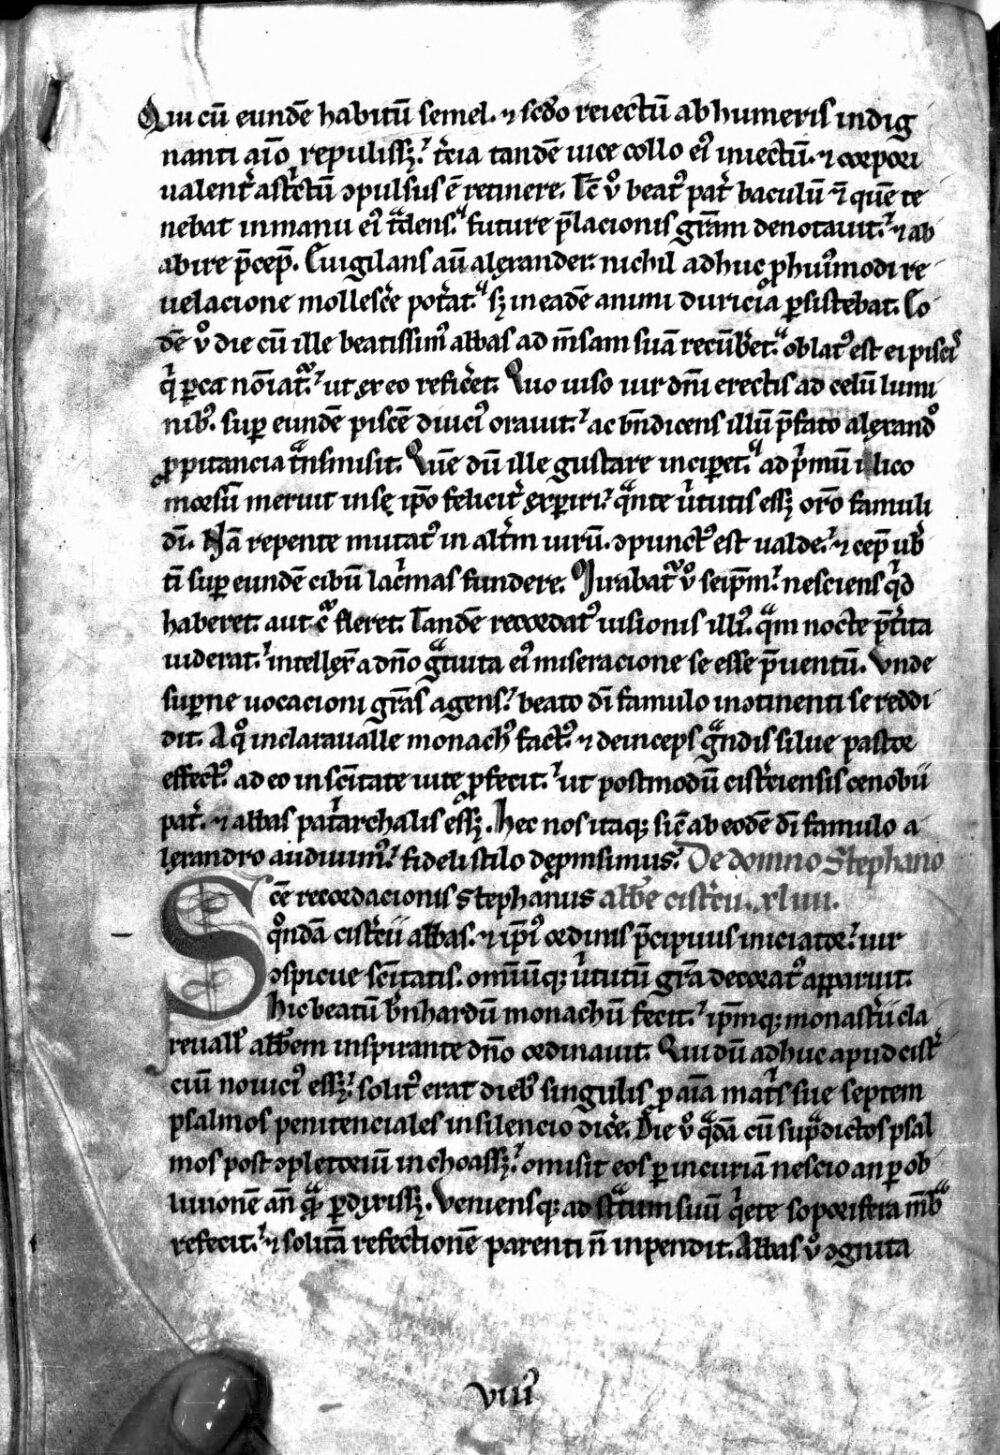 Qui cū eundē habitū semel. ⁊ scđo reiectū ab humeris indig
nanti aīo repulissꝫ. t̾cia tandē uice collo ei᷒ iniectū. ⁊ corpori
ualent̾ astⁱctū ɔpulsus ē retinere. Tc̄ v̊ beat᷒ pat̾ baculū q̄ quē te
nebat in manu ei᷒ tͣdens. future p̄lacionis gr̄am denotauit. ⁊ ab
abire p̄cep̄. Euigilans aū alexander. nichil adhuc ꝓ hui᷒modi re
uelacione mollesc̾e pot̾at. sꝫ in eadē animi duricia ꝑsistebat. Eo
dē v̊ die cū ille beatissim᷒ abbas ad m̄sam suā recūb̾et. oblat᷒ est ei pisc̾
qⁱ ꝑca noīat᷑. ut ex eo refic̾et. Quo uiso uir dn̄i erectis ad celū lumi
nib᷒. suꝑ eundē piscē diuci᷒ orauit. ac bn̄dicens illū p̄fato alexandͦ
ꝓ pitancia tͣnsmisit. Quē dū ille gustare incipet. ad pⁱmū ilico
morsū meruit in sę ip̄o felicit̾ exꝑiri. qͣnte u̾tutis essꝫ oro famuli
dī. Nā repente mutat᷒ in alt̾m uirū. ɔpunct᷒ est ualde. ⁊ cep̄ ub̾
tī suꝑ eundē cibū lacⁱmas fundere. Mirabat᷑ v̊ seip̄m. nesciens qⁱd
haberet. aut c᷑ fleret. Tandē recordat᷒ uisionis illi᷒. qͣm nocte p̄t̾ita
uiderat. intellex̾ a dn̄o gͣtuita ei᷒ miseracione se esse p̄uentū. Vnde
suꝑne uocacioni gr̄as agens. beato dī famulo inɔtinenti se reddi
dit. A quo in claraualle monach᷒ fact᷒. ⁊ deinceps gͣndis silue pastor
effect᷒. adeo in sc̄itate uite ꝓfecit. ut postmodū cist̾ciensis cenobii
pat̾. ⁊ abbas pat̾archalis essꝫ. Hec nos itaqꝫ sic̄ ab eodē dī famulo a
lexandro audiuim᷒. fideli stilo depͥnsimus. De domno Stephano
Sce̅ recordacionis Stephanus abb̄e cist̾cii. xliiii.
qͦndā cist̾cii abbas. ⁊ ip̄i᷒ ordinis p̄cipuus iniciator. uir
ɔspicue sc̄itatis. omīumqꝫ u̾tutū gr̄a decorat᷒ apparuit.
Hic beatū b̾nhardū monachū fecit. ip̄mqꝫ monast̾ii cla
reuall̾ abb̄em inspirante dn̄o ordinauit. Qui dū adhuc apud cist̾
ciū nouici᷒ essꝫ. solit᷒ erat dieb᷒ singulis ꝓ aīa mat̾s sue septem
psalmos penitenciales in silencio dic̾e. Die v̊ qͣdā cū supͣdictos psal
mos post ɔpletoriū inchoassꝫ. omisit eos ꝑ incuriā nescio an ꝑ ob
liuionē an̄ qͣ ꝑdixissꝫ. Veniensqꝫ ad stͣtum suū qⁱete soporifera mb̄ͣ
refecit. ⁊ solitā refectionē parenti n̄ inpendit. Abbas v̊ ɔgnita
viii᷒